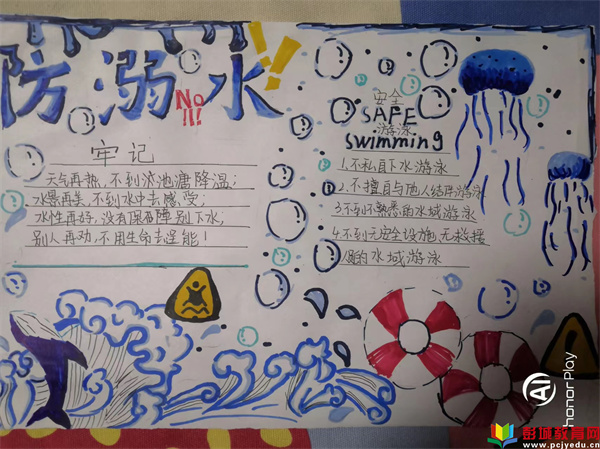 防溺水!!
No!!!
牢记
天气再热,不到池塘降温;
水景再美,不到水中去感受;
水性再好,没有保障别下水,
别人再劝,不用生命去逞能!
安全
SAFE
游泳
swimming
1.不私自下水游泳
2.不擅自与他人结伴游泳
3.不到不熟悉的水域游泳
4.不到无安全设施,无救援
的水域游泳
AI
honorPlay
彭城教育网
www.pcjyedu.cn